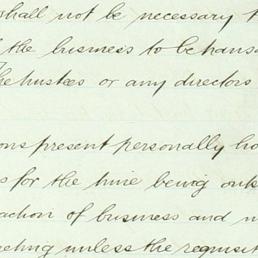 shall not be necessary
the business to be transa
the trustees or any directors
ons present personally ho
s for the time being outs
action of business and n
eeting unless the requisit